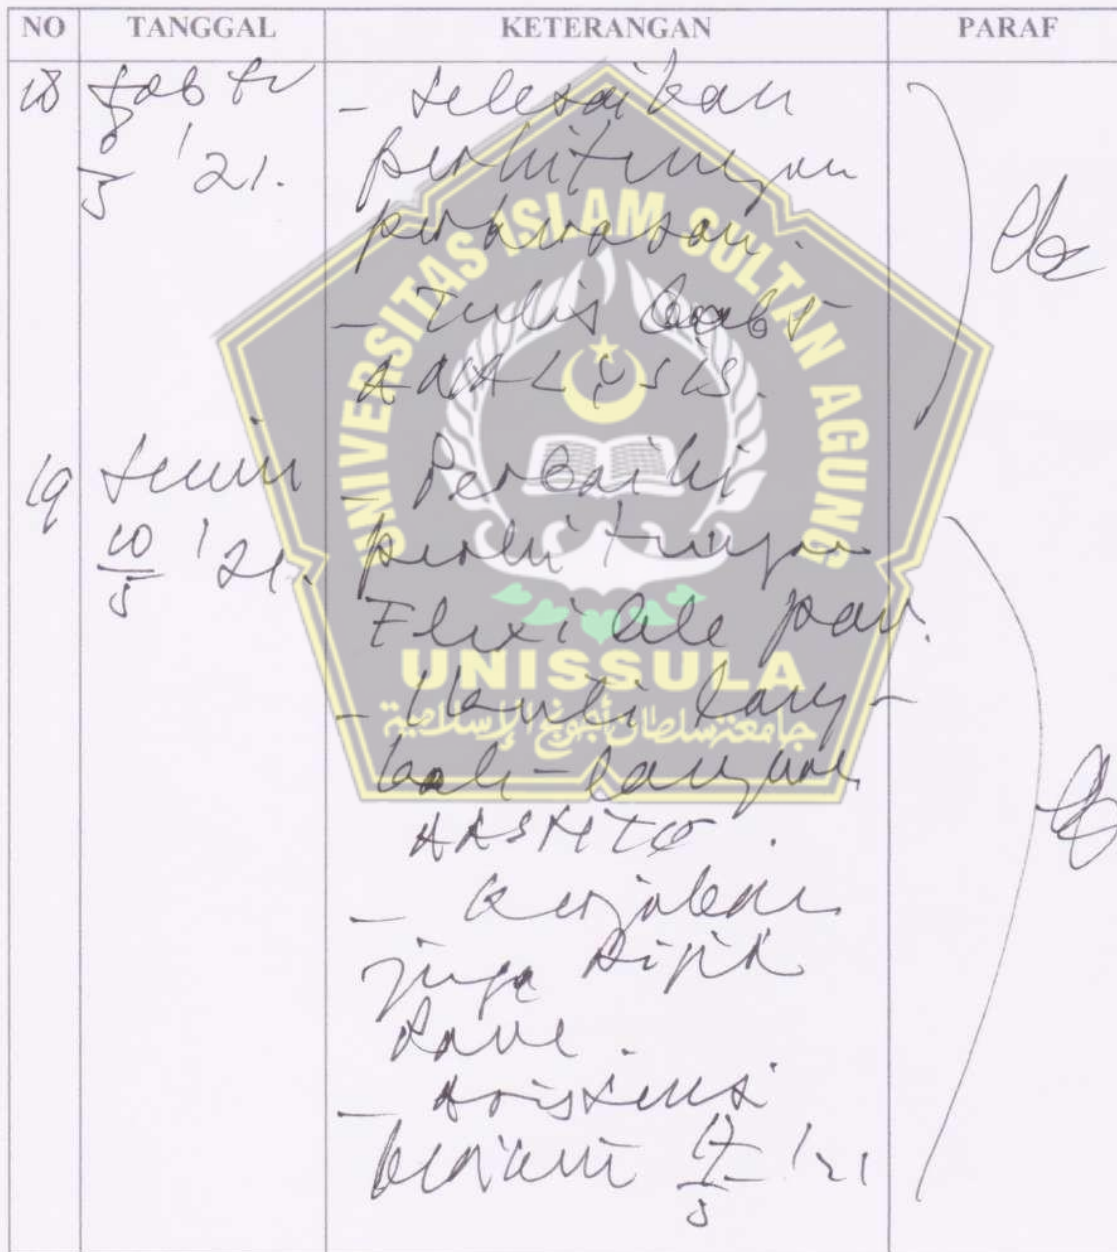 NO TANGGAL KETERANGAN PARAF
18 Sabtu - Selesaikan
8/5 '21. perhitungan
perkerasan.
- Tulis bab 5
ANALYSIS.
19 Senin - Perbaiki
10/5 '21. perhitungan
Flexible pav.
- Ikuti lang-
kah-langkah
AASHTO.
- Kerjakan
juga Rigid
Pave.
- Asistensi
17/5 '21
UNIVERSITAS ISLAM SULTAN AGUNG
UNISSULA
جامعة سلطان أجونج الإسلامية